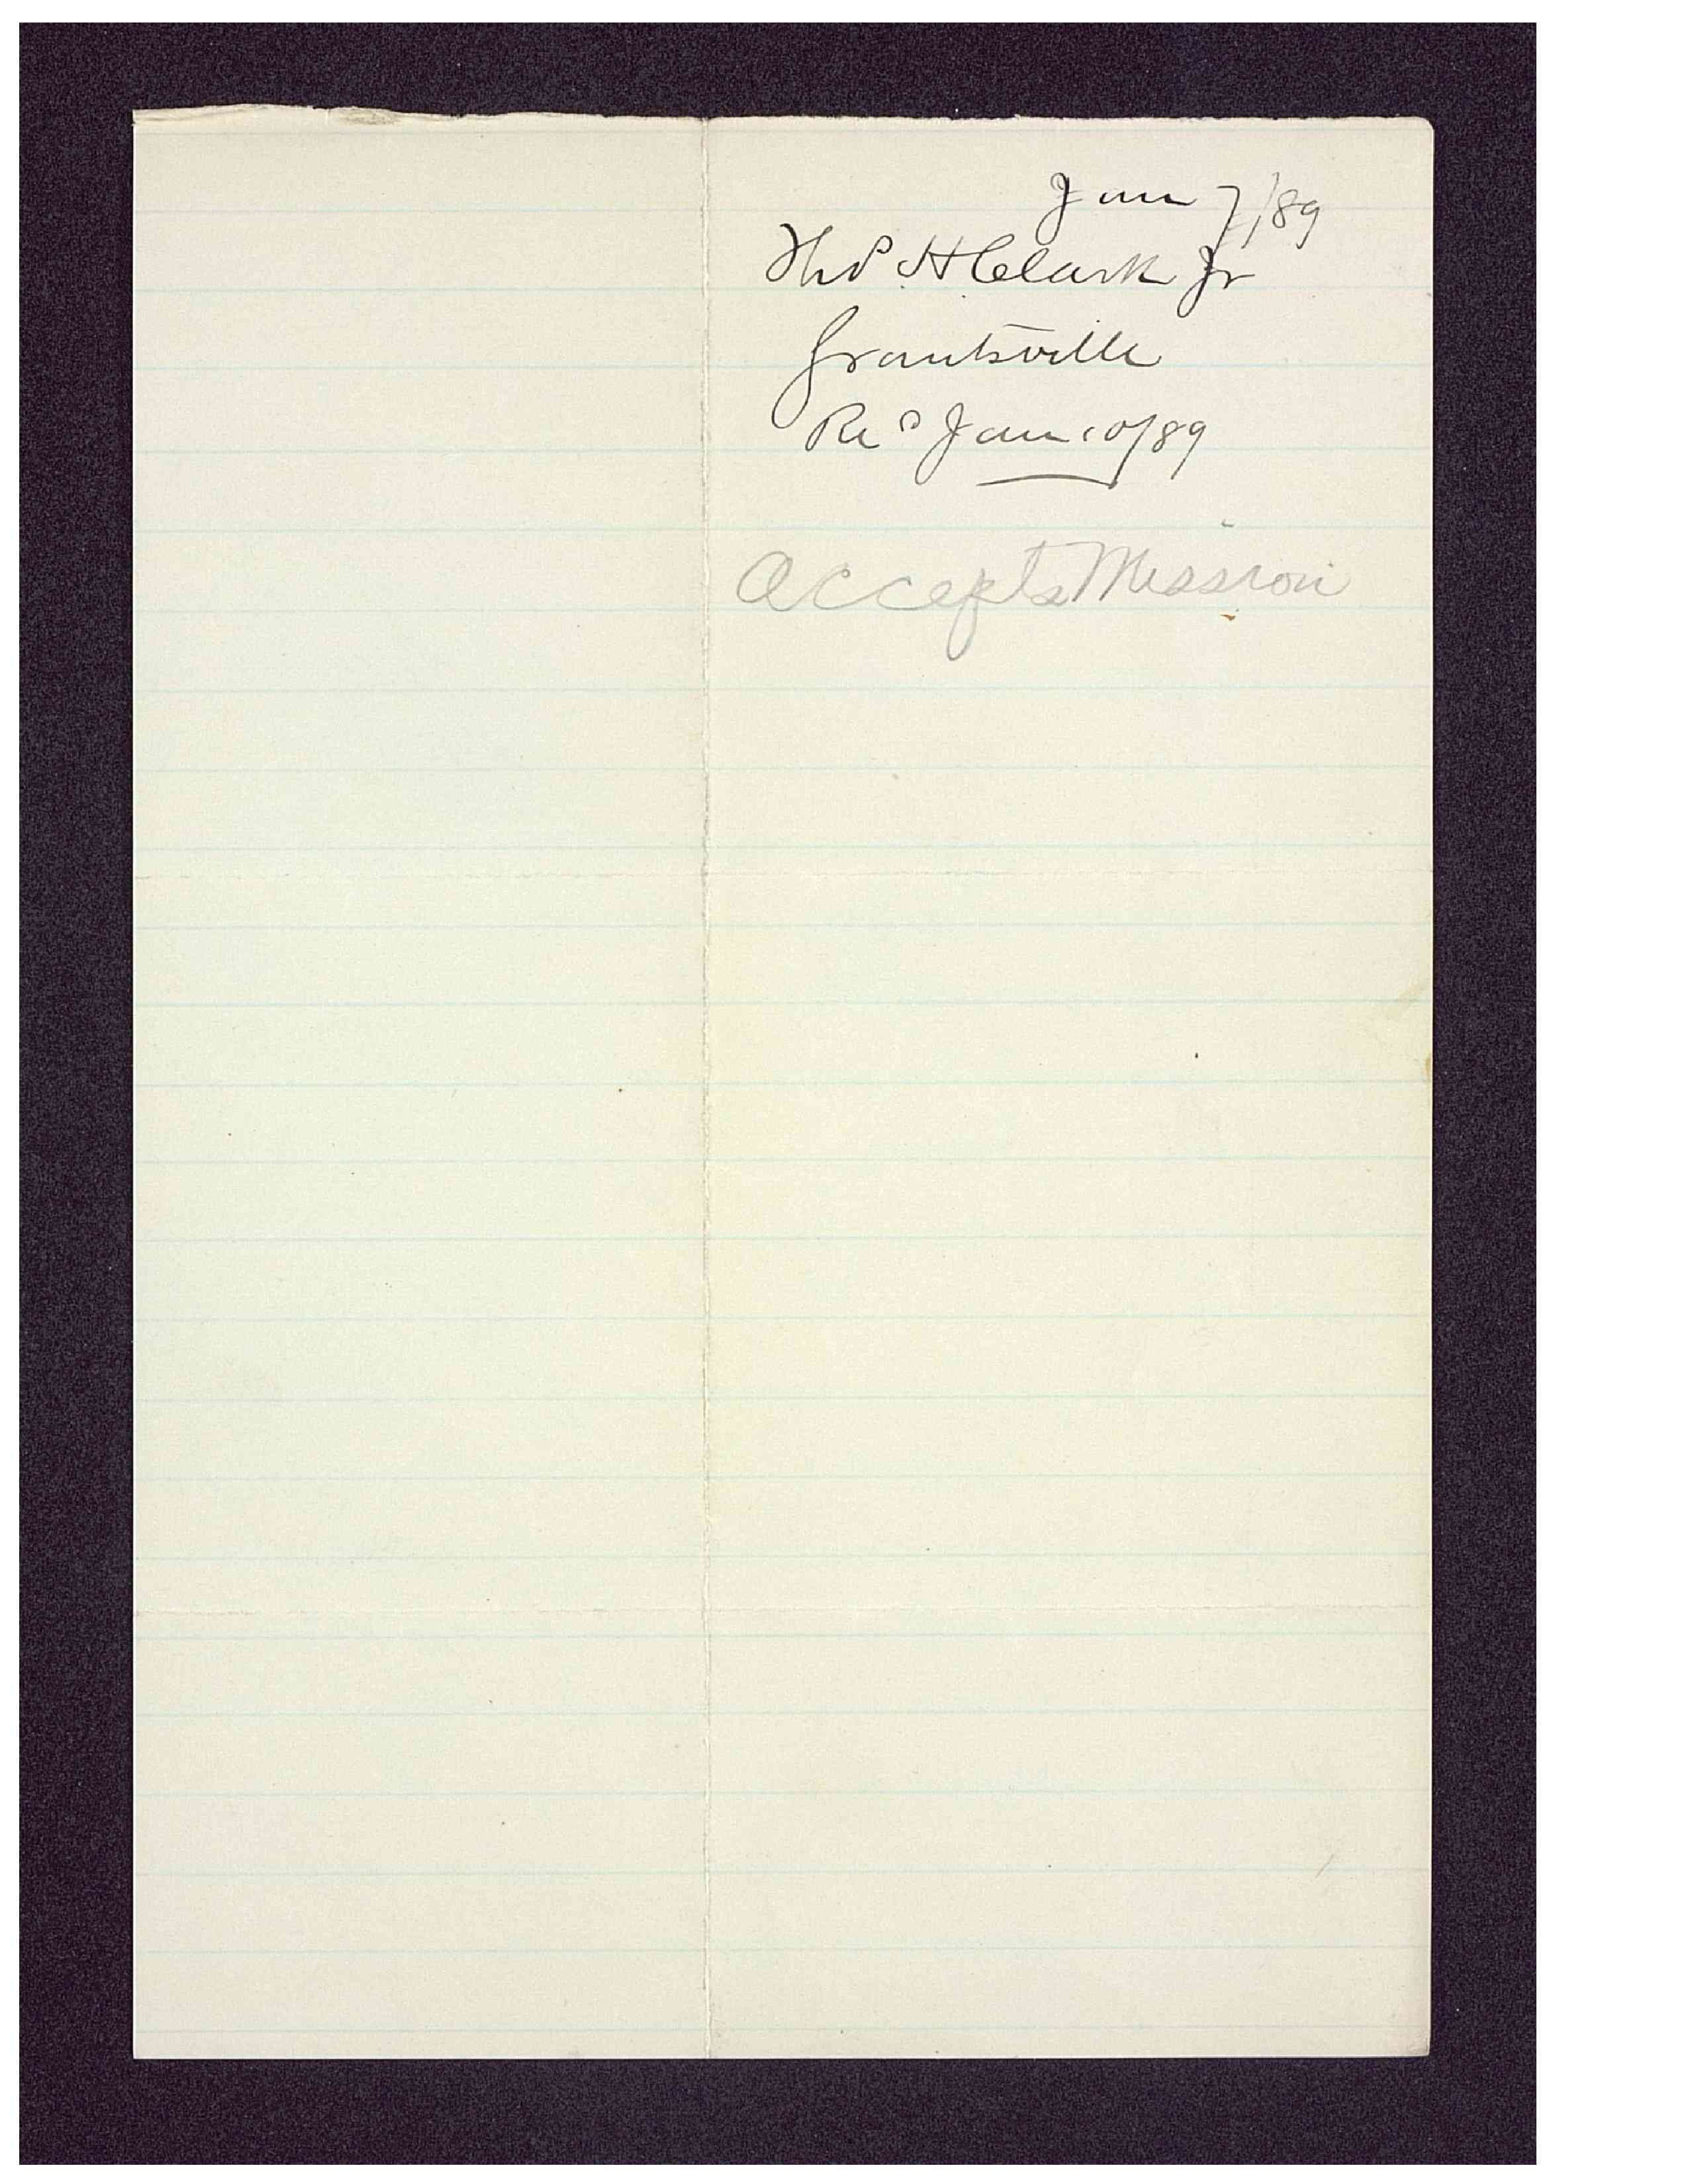 Jan 7/89
Thos H Clark Jr
Grantsville
Recd Jan 10/89
Accepts Mission